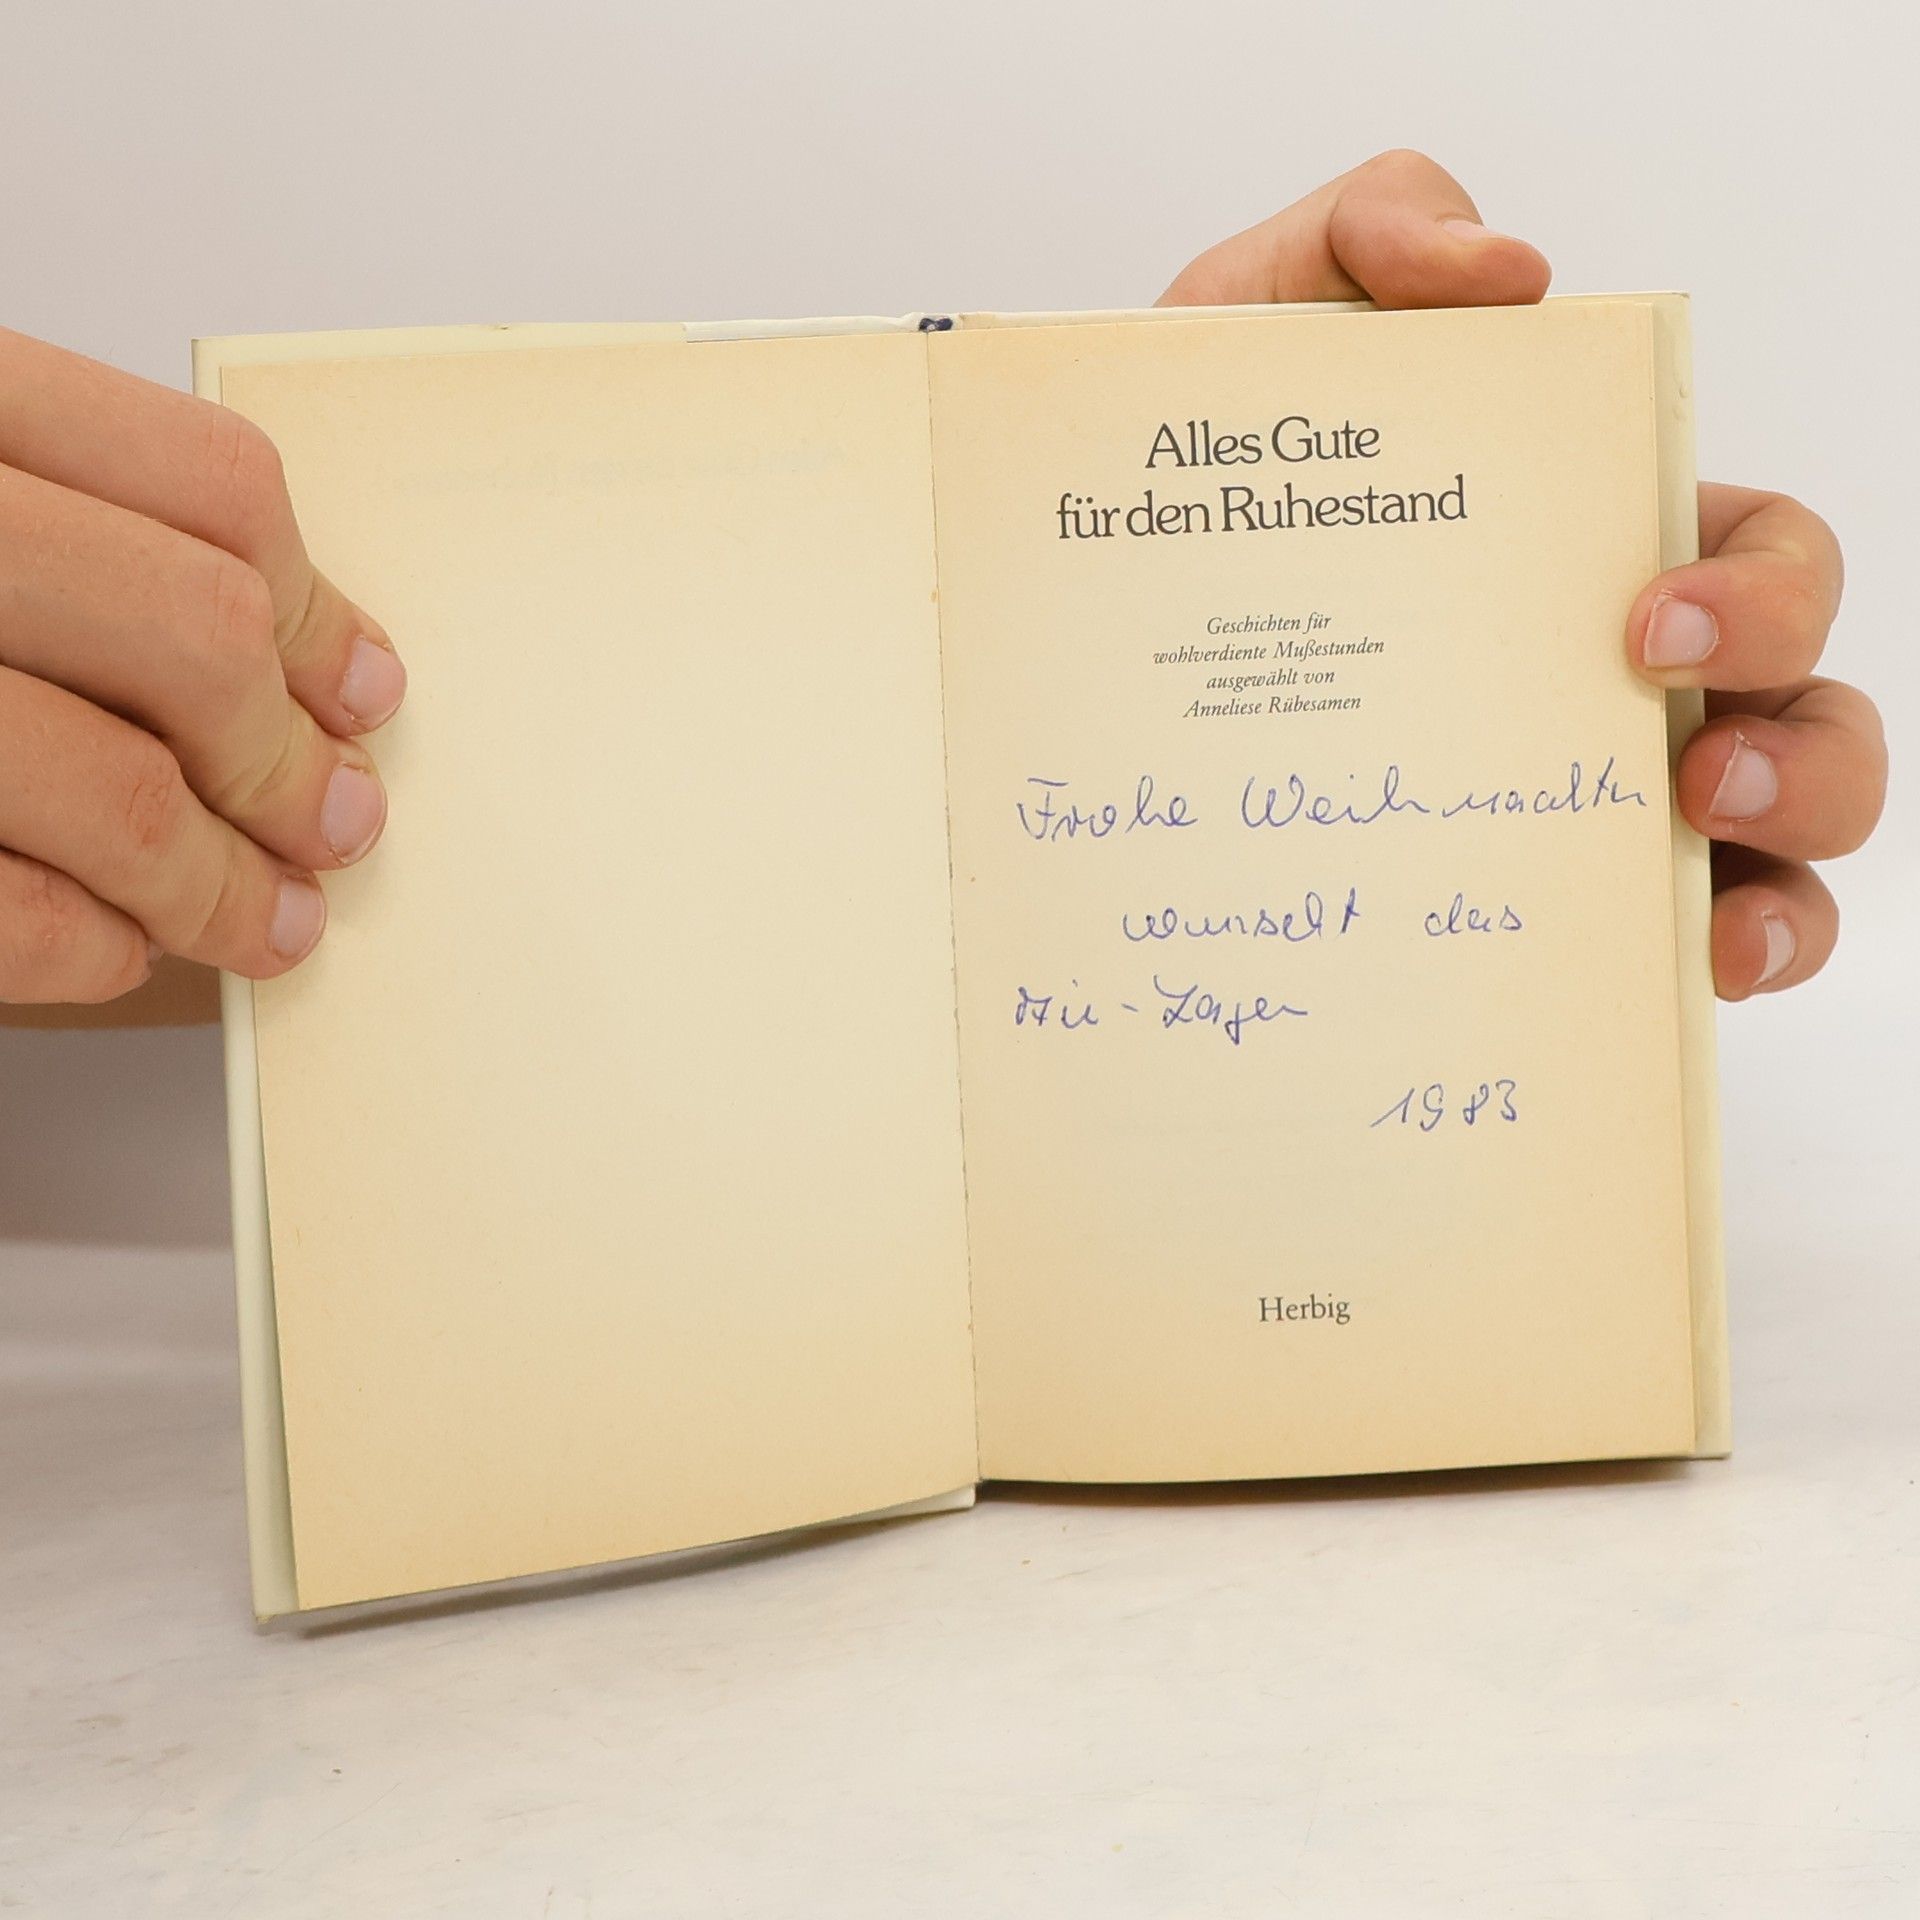 Alles Gute
für den Ruhestand
Geschichten für
wohlverdiente Mußestunden
ausgewählt von
Anneliese Rübesamen
Frohe Weihnachten
wunscht das
- Lager
1983
Herbig